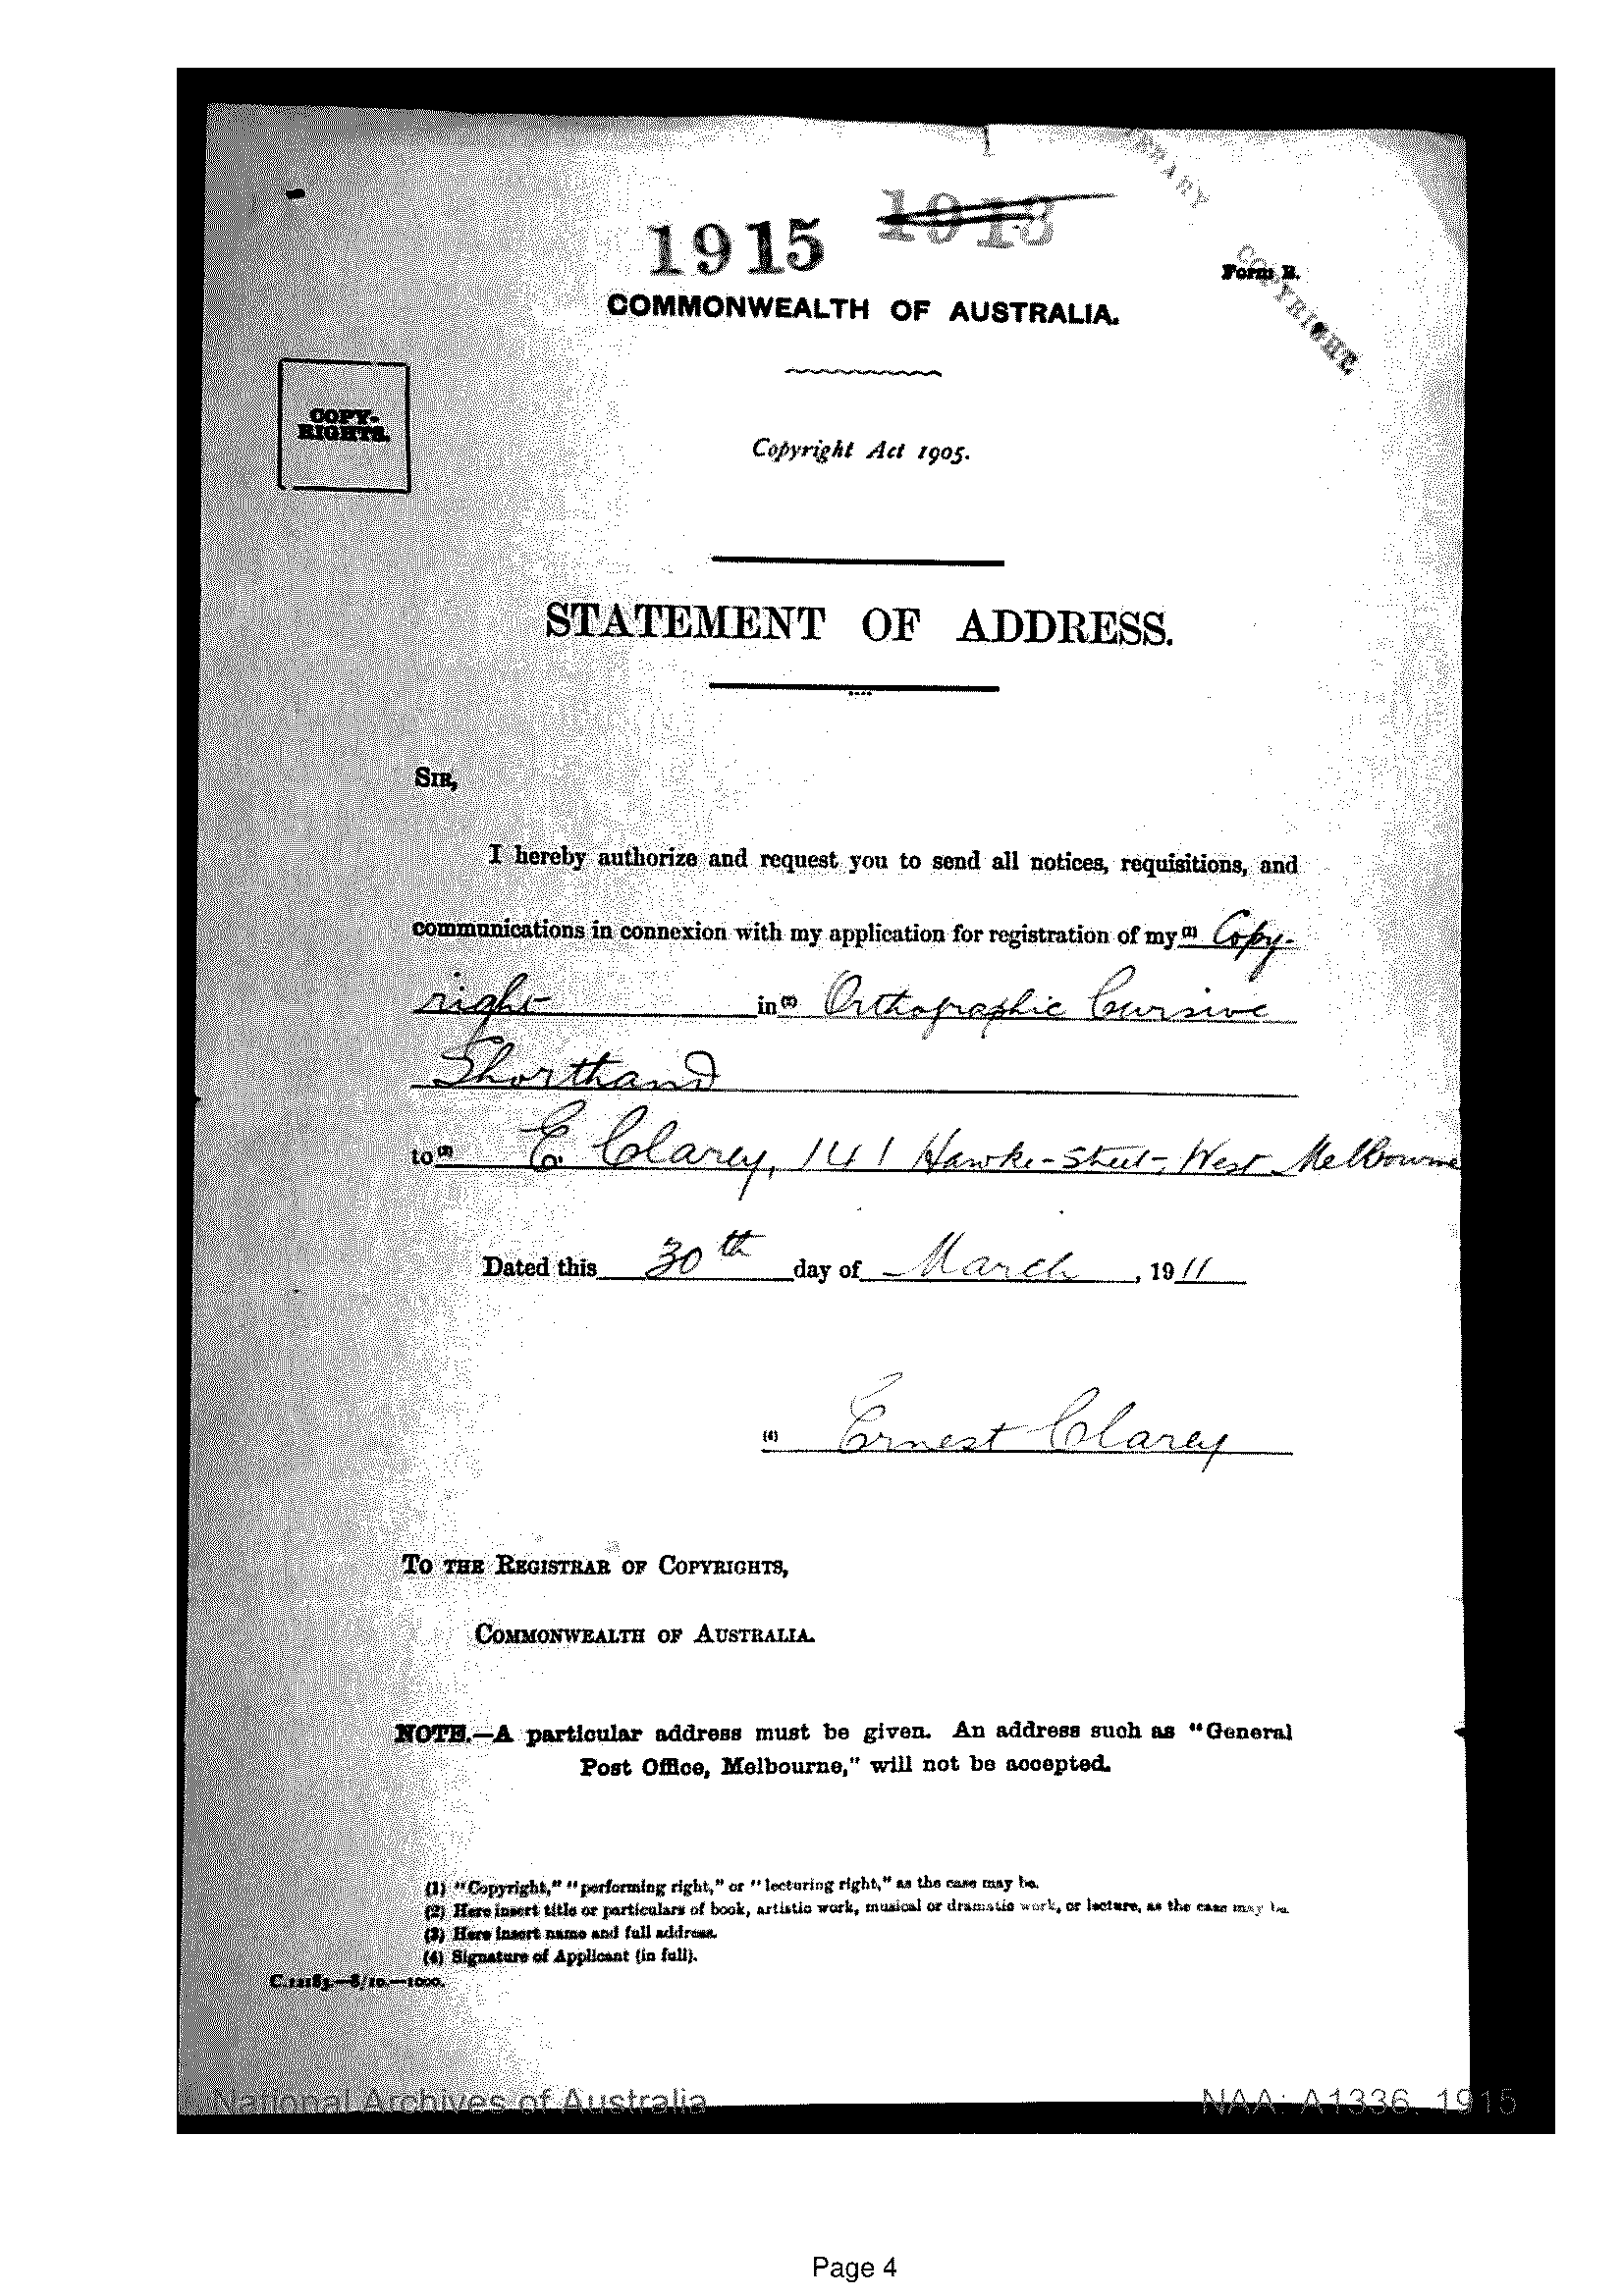 1915 1913
LIBRARY
COPYRIGHT
Form B.
COMMONWEALTH OF AUSTRALIA.
COPY-
RIGHTS.
Copyright Act 1905.
STATEMENT OF ADDRESS.
SIR,
I hereby authorize and request you to send all notices, requisitions, and
communications in connexion with my application for registration of my (1) Copy-
right in (2) Orthographic Cursive
Shorthand
to (3) E. Clarey, 141 Hawke-Street, West Melbourne
Dated this 30th day of March, 1911
(4) Ernest Clarey
TO THE REGISTRAR OF COPYRIGHTS,
COMMONWEALTH OF AUSTRALIA.
NOTE.—A particular address must be given. An address such as "General
Post Office, Melbourne," will not be accepted.
(1) "Copyright," "performing right," or "lecturing right," as the case may be.
(2) Here insert title or particulars of book, artistic work, musical or dramatic work, or lecture, as the case may be.
(3) Here insert name and full address.
(4) Signature of Applicant (in full).
National Archives of Australia
NAA: A1336, 1915
Page 4